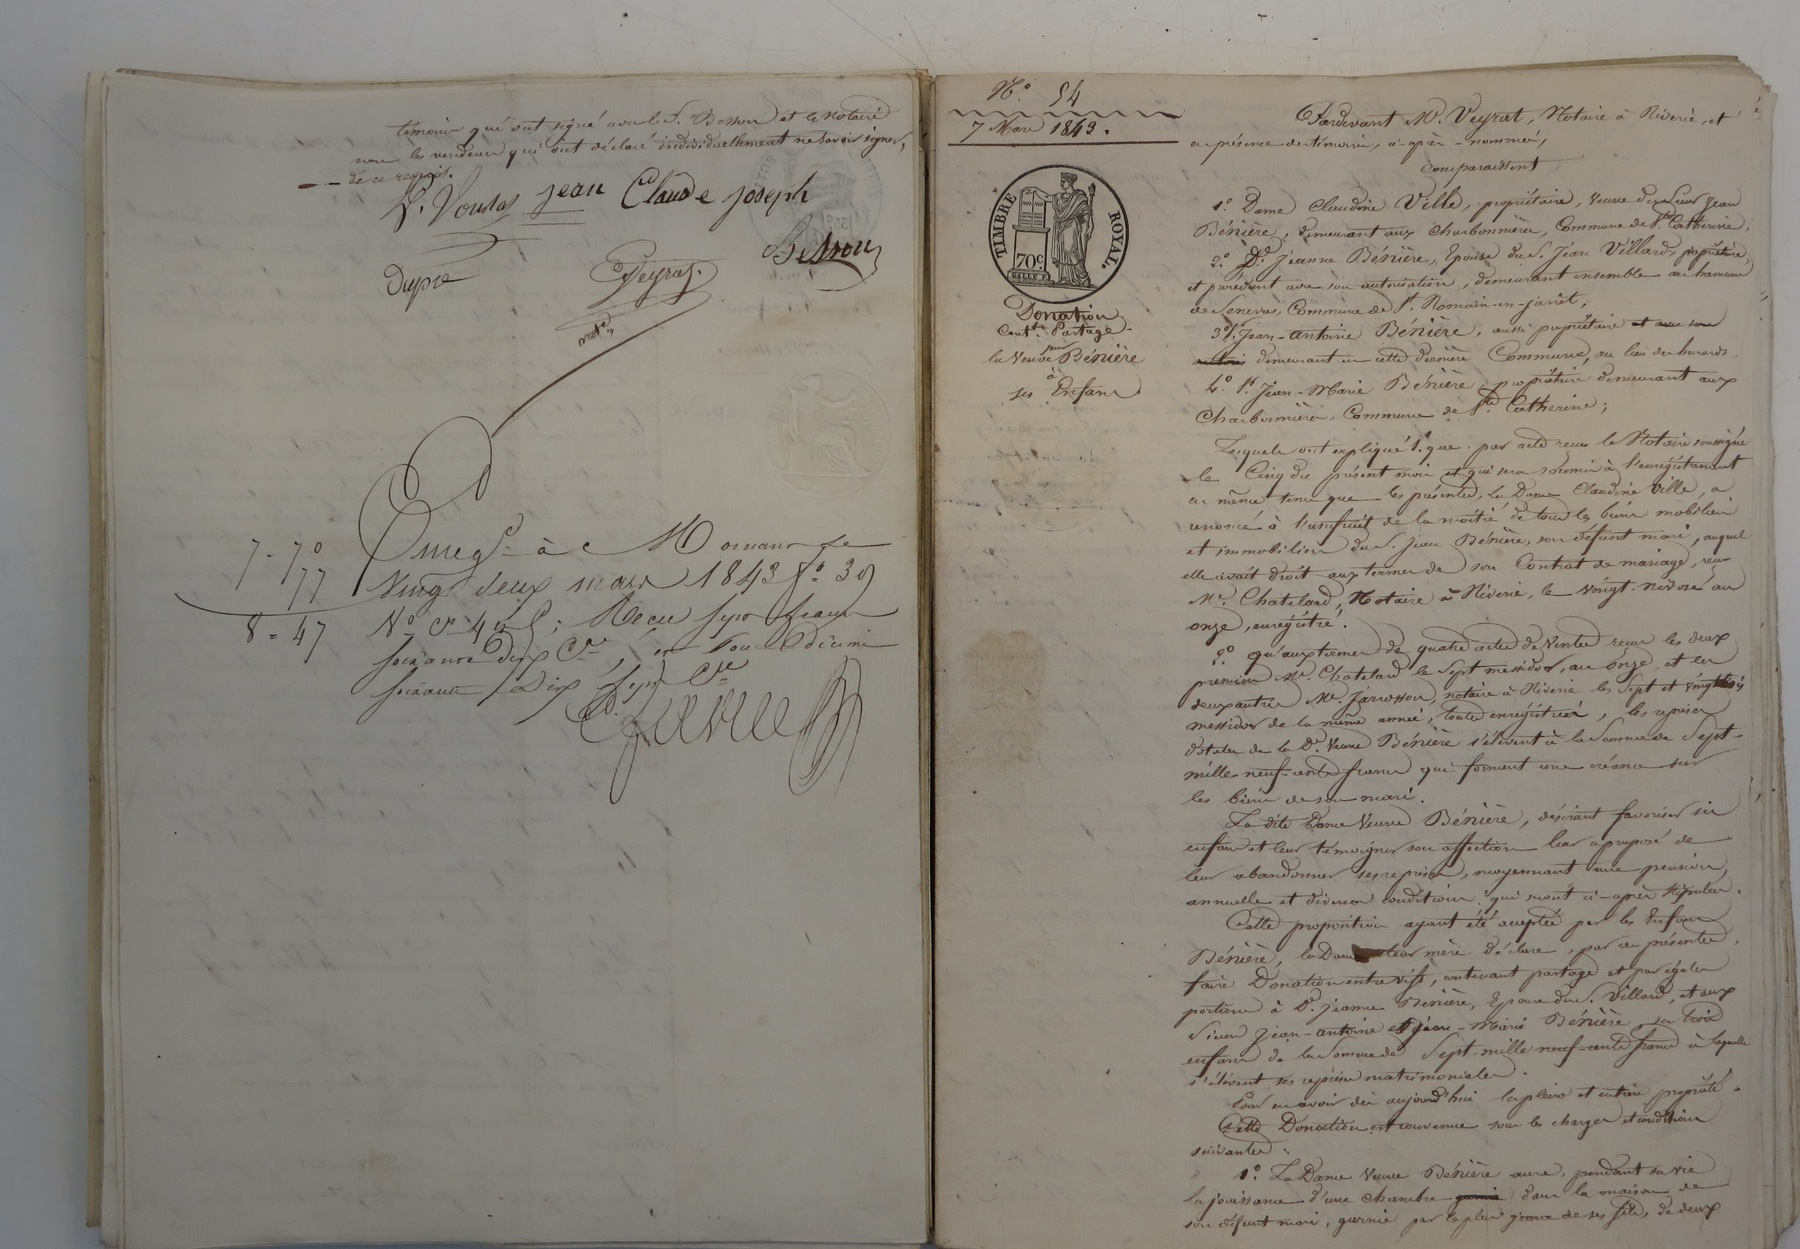 témoins qui ont signé avec le S. Besson et le Notaire
non les vendeurs qui ont déclaré individuellement ne savoir signer,
de ce requis.
jean Claude joseph
Besson
Dupre
Veyrat
not.re
7-70
77
8-47
Enreg.é à Mornant le
vingt deux mars 1843 f.o 39
N.o Reçu sept francs
soixante dix C.es, et pour Décime
soixante Dix sept C.es
N.o 54
7 Mars 1843.
TIMBRE ROYAL.
70c
Donation
Cont.t Partage
par
la Veuve Bénière
à
ses Enfans
Pardevant M.e Veyrat, Notaire à Riverie, et
en présence de témoins, ci-après nommés,
Comparaissent
1.o Dame Claudine Ville, propriétaire, Veuve du Sieur Jean
Bénière, demeurant aux Charbonnières, Commune de S.te Catherine,
2.o D.e Jeanne Bénière, Epouse du S. Jean Villard, propriétaire,
et procédant avec son autorisation, demeurant ensemble au hameau
de Senevas, Commune de S.t Romain-en-jarrêt;
3.o S. Jean-antoine Bénière, aussi propriétaire et avec son
demeurant en cette dernière Commune, au lieu des
4.o S. Jean-Marie Bénière, propriétaire demeurant aux
Charbonnières, Commune de S.te Catherine;
Lesquels ont expliqué 1.o que par acte reçu le Notaire soussigné
le Cinq du présent mois et qui sera soumis à l'enregistrement
en même tems que les présentes, La Dame Claudine Ville, a
renoncé à l'usufruit de la moitié de tous les biens mobiliers
et immobiliers du S. Jean Bénière, son défunt mari, auquel
elle avait droit aux termes de son Contrat de mariage, reçu
M.e Chateland, Notaire à Riverie, le vingt nivose an
onze, enregistré.
2.o qu'aux termes de quatre actes de Ventes reçus les deux
premiers M.e Chatelard le Sept messidor, an onze, et les
deux autres M.e Jarrosson, notaire à Riverie les Sept et vingt trois
messidor de la même année, toutes enregistrées, les reprises
dotales de la D.e Veuve Bénière s'élèvent à la Somme de Sept-
mille neuf-cents francs qui forment une créance sur
les biens de son mari.
La dite Dame Veuve Bénière, désirant favoriser ses
enfans et leur témoigner son affection leur a proposé de
leur abandonner ses reprises, moyennant une pension,
annuelle et diverses conditions qui seront ci-après stipulées.
Cette proposition ayant été acceptée par les Enfans
Bénière, la Dame leur mère déclare, par ces présentes,
faire Donation entre vifs, contenant partage et par égales
portions à D.e Jeanne Bénière, Epouse du S. Villard, et aux
Sieurs Jean-antoine et Jean-Marie Bénière, ses trois
enfans de la Somme de Sept-mille neuf-cents francs à laquelle
s'élèvent ses reprises matrimoniales.
Pour en avoir dès aujourd'hui la pleine et entière propriété.
Cette Donation est convenue sous les charges et conditions
suivantes:
1.o La Dame Veuve Bénière aura, pendant sa vie
la jouissance d'une chambre garnie dans la maison de
son défunt mari, garnie par le plus jeune de ses fils, de deux